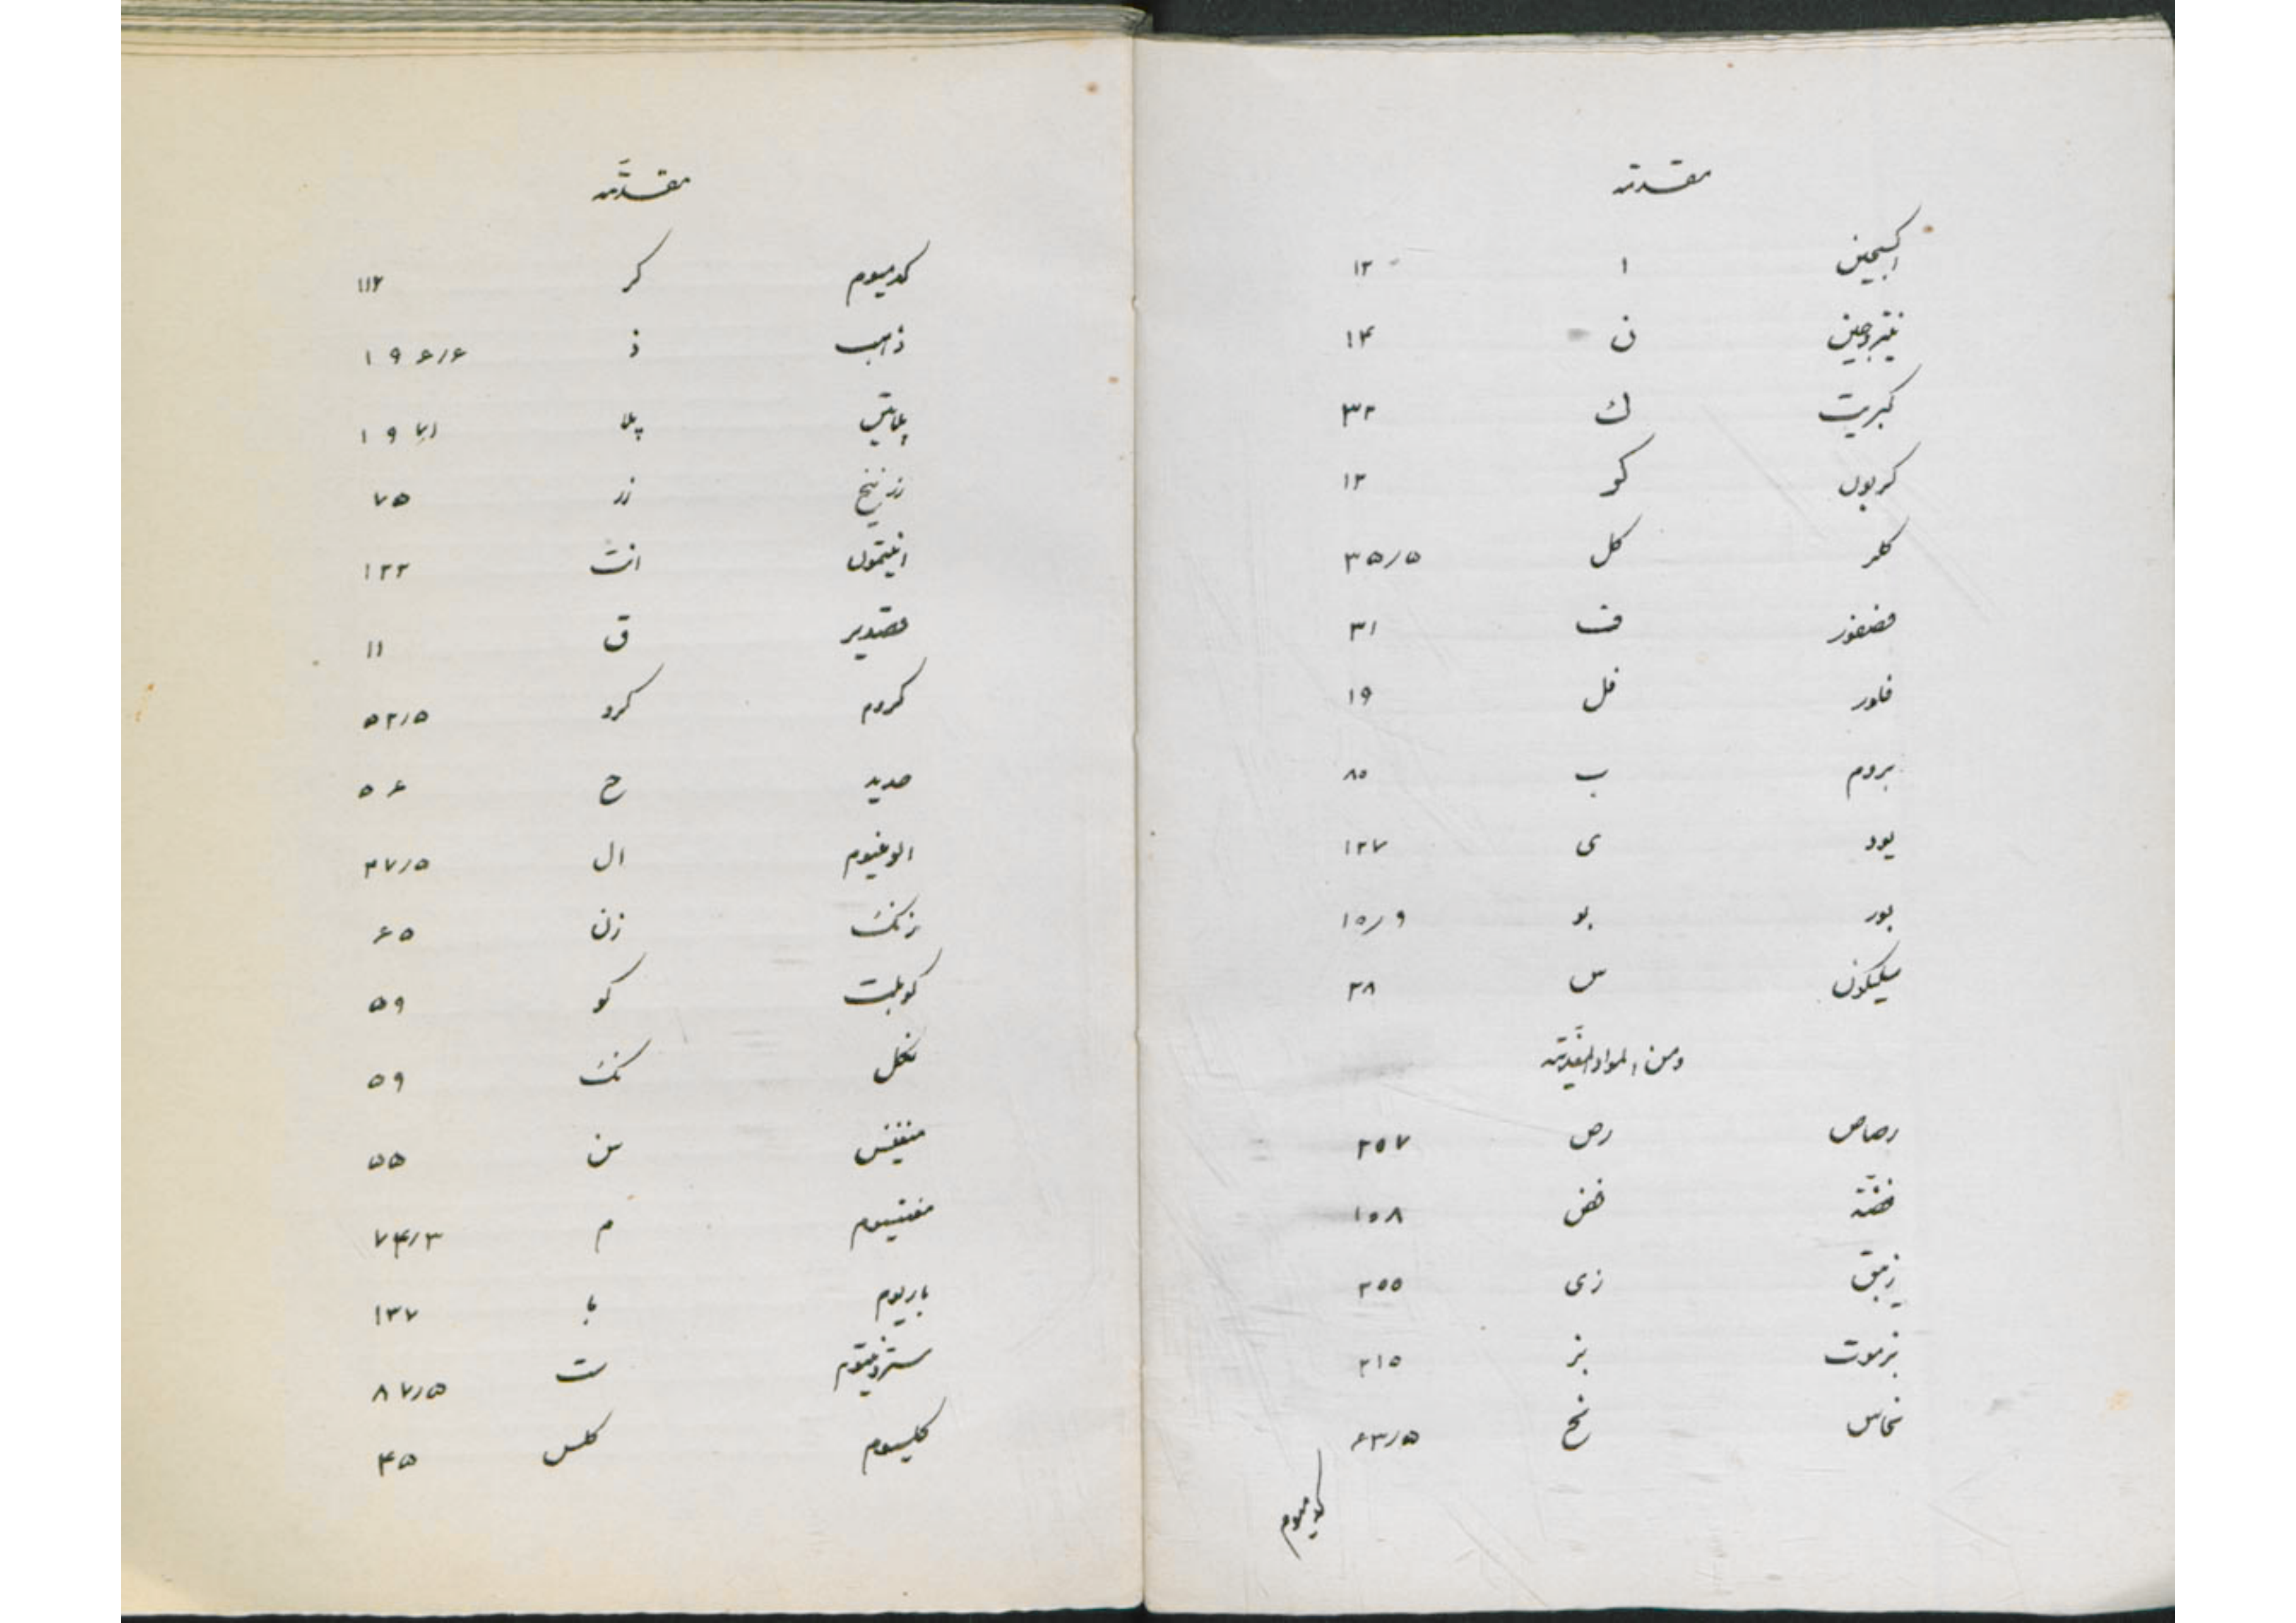 مقدمه
اکسیجین ا ۱۲
نیتروجین ن ۱۴
کبریت ك ۳۲
کربون کو ۱۲
کلر کل ۳۵/۵
فصفور ف ۳۱
فلور فل ۱۹
بروم ب ۸۰
یود ی ۱۲۷
بور بو ۱۰/۹
سیلیکون س ۲۸
ومن المواد المفیدة
رصاص رص ۲۰۷
فضّة فض ۱۰۸
زیبق زی ۲۰۰
بزموت بز ۲۱۰
نحاس نح ۶۳/۵
کدمیوم
مقدّمه
کدمیوم کر ۱۱۲
ذاهب ذ ۱۹۶/۶
پلاتین پلا
زرنیخ زر ۷۵
انتیمون انت ۱۲۲
قصدیر ق ۱۱
کروم کرو ۵۲/۵
حدید ح ۵۶
الومنیوم ال ۲۷/۵
زنك زن ۶۵
کوبلت کو ۵۹
نکل نك ۵۹
منغنیس من ۵۵
مغنیسیوم م ۷۴/۳
باریوم با ۱۳۷
سترونتیوم ست ۸۷/۵
کلیسیوم کلس ۴۵